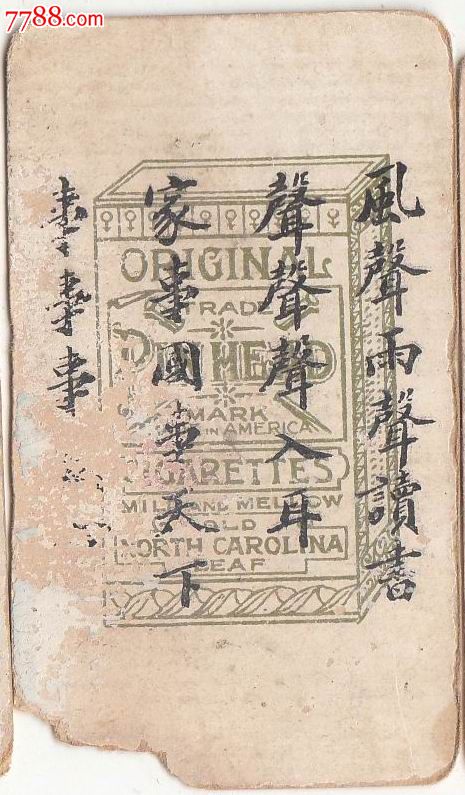 7788.com
風聲雨聲讀書
聲聲聲入耳
家事國事天下
事事事
ORIGINAL
TRADE
PINHEAD
MARK
IN AMERICA
CIGARETTES
MILD AND MELLOW
OLD
NORTH CAROLINA
LEAF